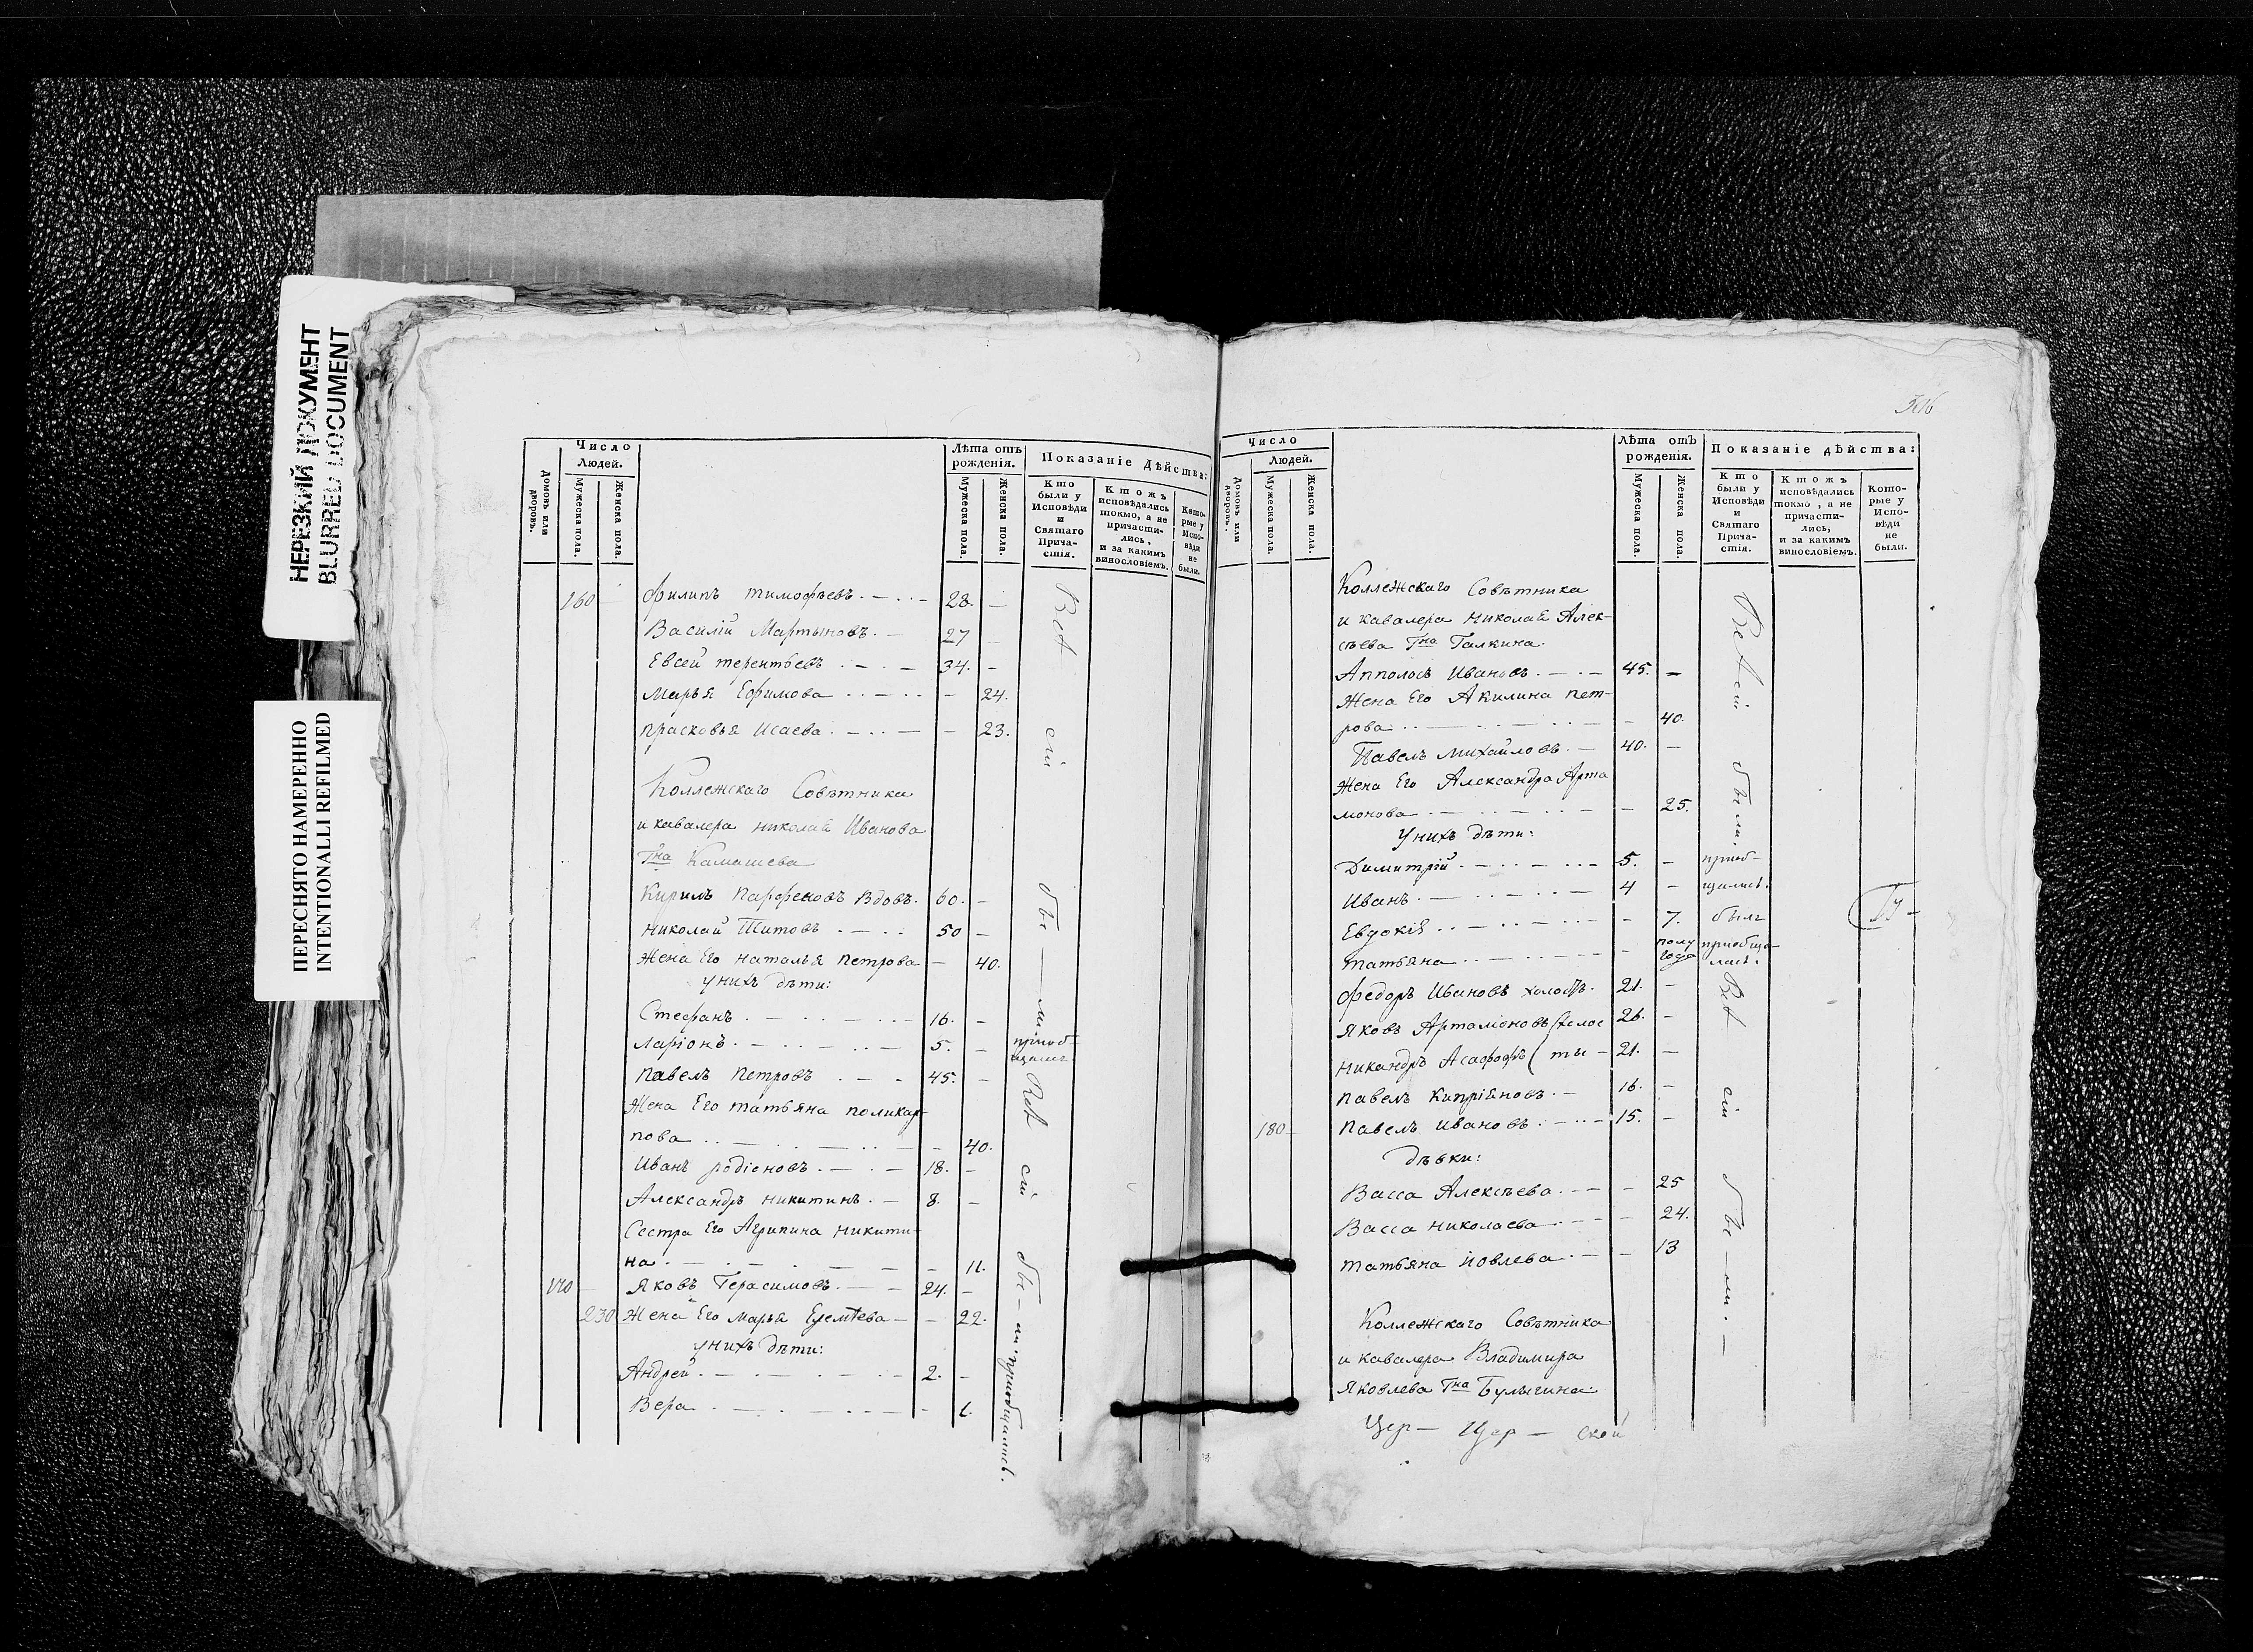 НЕРЕЗКИЙ ДОКУМЕНТ
BLURRED DOCUMENT
ПЕРЕСНЯТО НАМЕРЕННО
INTENTIONALLI REFILMED
Число
Людей.
Домовъ или дворовъ.
Мужеска пола.
Женска пола.
Лѣта отъ рожденія.
Мужеска пола.
Женска пола.
Показаніе Дѣйства:
Кто были у Исповѣди и Святаго Причастія.
Ктожъ исповѣдались токмо, а не причастились, и за какимъ винословіемъ.
Которые у Исповѣди не были.
160 Филипъ Тимофѣевъ 28. Всѣ
Василій Мартыновъ 27
Евсей терентьевъ 34.
Марья Ефимова 24.
прасковья Исаева 23. сіи
Коллежскаго Совѣтника
и кавалера николая Иванова
Гна Камашева
Кирилъ Парфеновъ вдовъ. 60. бы
николай Титовъ 50
Жена Его наталья петрова 40.
у нихъ дѣти:
Стефанъ 16. ли.
Ларіонъ 5. приоб-
щался
павелъ Петровъ 45. Всѣ
Жена Его татьяна поликар-
пова 40.
Иванъ родіоновъ 18. сіи
Александръ никитинъ 8.
Сестра Его Агрипина никити-
на 11. бы-
170 Яковъ Герасимовъ 24.
230 Жена Его марья Еремѣева 22. ли
у нихъ дѣти:
Андрей 2. приобщались.
Вера 1.
Число
Людей.
Домовъ или дворовъ.
Мужеска пола.
Женска пола.
Лѣта отъ рожденія.
Мужеска пола.
Женска пола.
Показаніе дѣйства:
Кто были у Исповѣди и Святаго Причастія.
Ктожъ исповѣдались токмо, а не причастились, и за какимъ винословіемъ.
Которые у Исповѣди не были.
Коллежскаго Совѣтника
и кавалера николая Алек-
сѣева Гна Галкина. Всѣ сіи
Апполосъ Ивановъ 45.
Жена Его Акилина пет-
рова 40.
Павелъ михайловъ 40.
Жена Его Александра Арта
монова 25. были
у нихъ дѣти:
Димитрій 5. приоб-
Иванъ 4 щались.
Евдокія 7. была
татьяна полу года приобща-
лась.
федоръ Ивановъ холостъ. 21. Всѣ
Яковъ Артамоновъ (холос 26.
никандръ Асафофъ (ты 21.
павелъ Кипріяновъ 16. сіи
180 павелъ ивановъ 15.
дѣвки:
Васса Алексѣева 25 бы
Васса николаева 24.
татьяна Иовлева 13 ли.
Коллежскаго Совѣтника
и кавалера Владимира
Яковлева Гна Булыгина:
Цер- Цер- ской